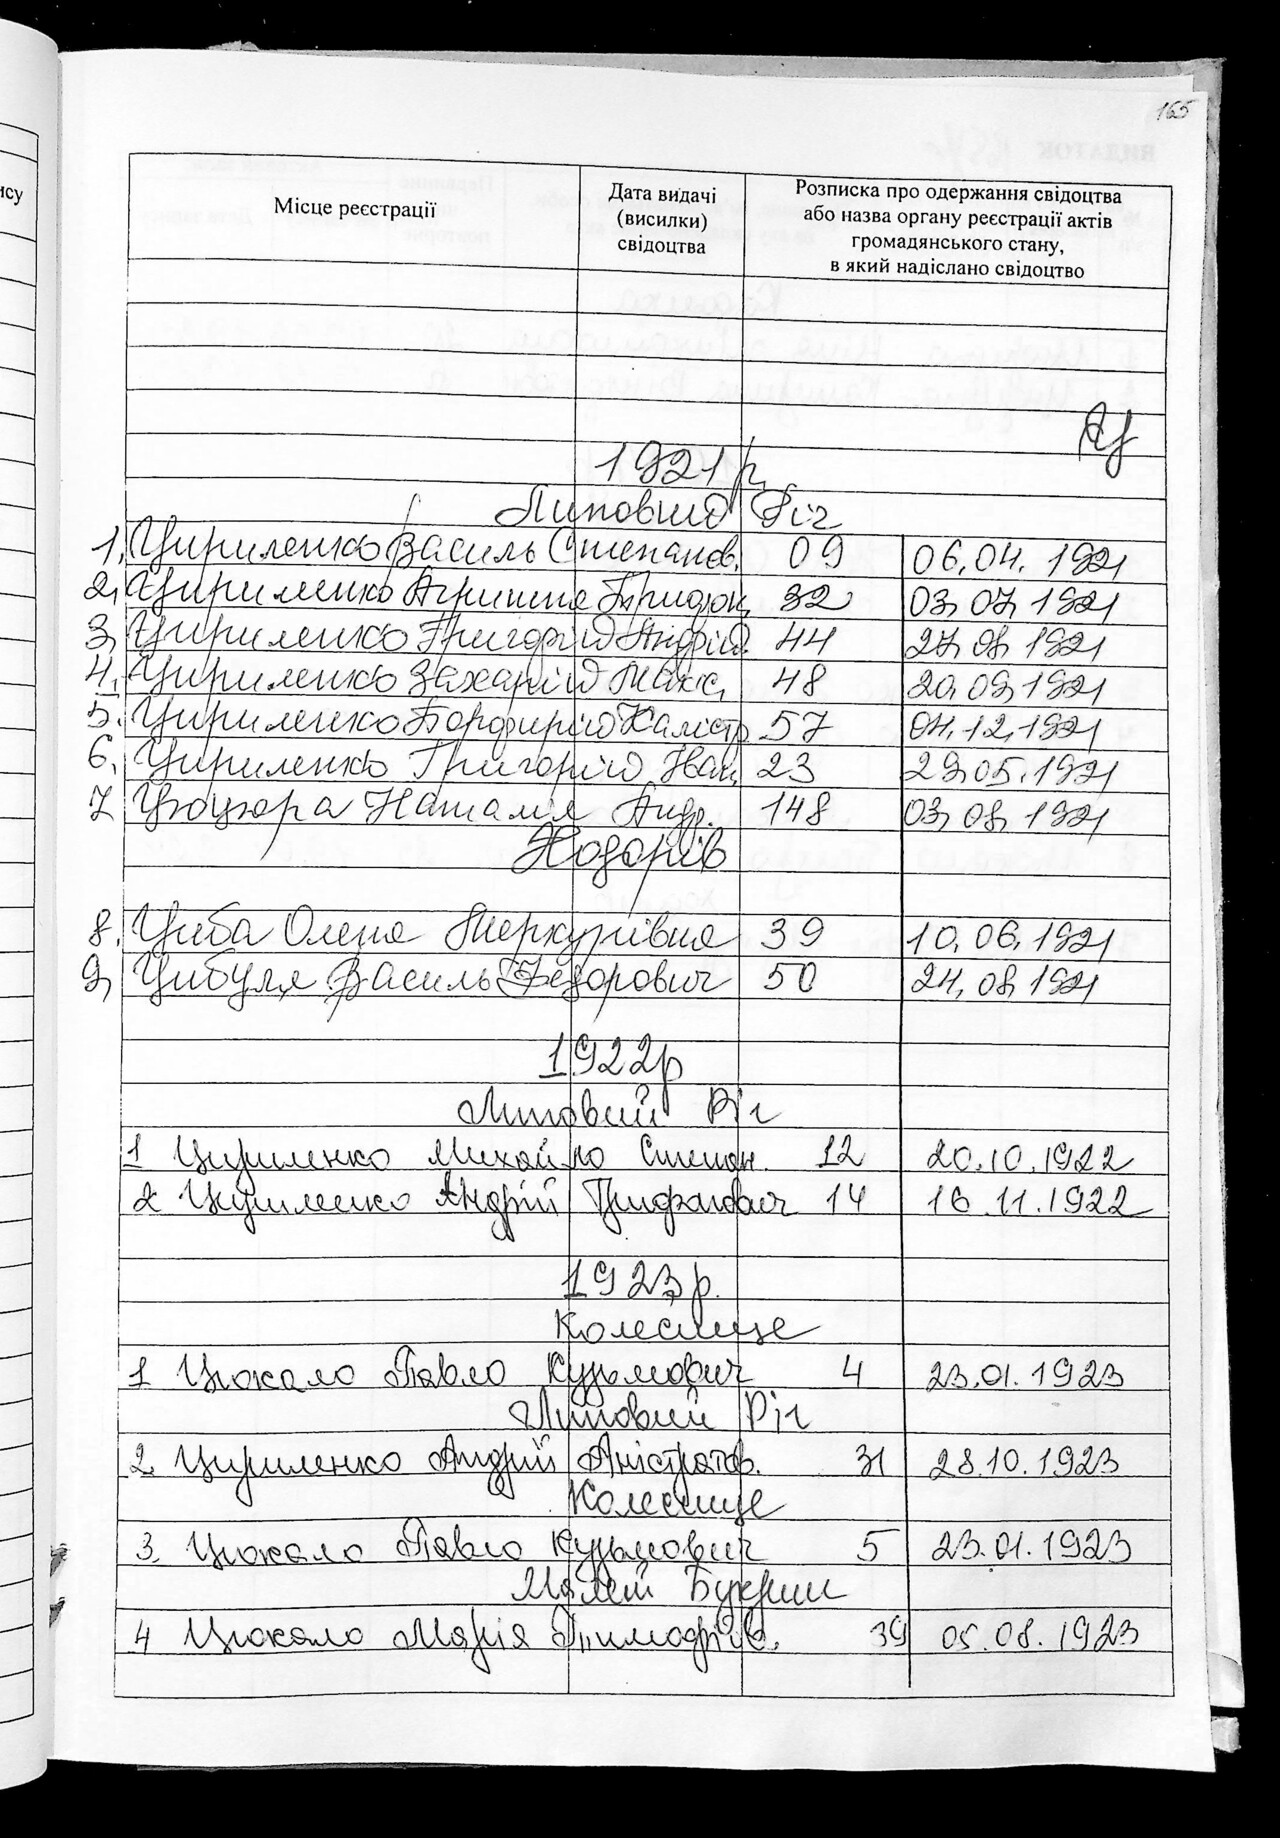 165
ису
Місце реєстрації
Дата видачі
(висилки)
свідоцтва
Розписка про одержання свідоцтва
або назва органу реєстрації актів
громадянського стану,
в який надіслано свідоцтво
1921р.
Липовий Ріг
1, Цириленко Василь Степанов. 09 06.04.1921
2, Цириленко 32 03.07.1921
3, Цириленко Григорій Андрій. 44 27.08.1921
4, Цириленко Захарій Макс. 48 20.09.1921
5. Цириленко Порфирій Калістр. 57 04.12.1921
6, Цириленко Григорій Іван. 23 29.05.1921
7, Цюцюра Наталія Андр. 148 03.08.1921
Ходорів
8, Циба Олена Меркурівна 39 10.06.1921
9, Цибуля Василь Федорович 50 24.08.1921
1922р
Липовий Ріг
1 Цириленко Михайло Степан. 12 20.10.1922
2 Цириленко Андрій 14 16.11.1922
1923р.
Колесище
1 Цюкало Павло Кузьмович 4 23.01.1923
Липовий Ріг
2. Цириленко Андрій 31 28.10.1923
Колесище
3. Цюкало Павло Кузьмович 5 23.01.1923
Малий Букрин
4 Цюкало Марія Тимофіїв. 39 05.08.1923